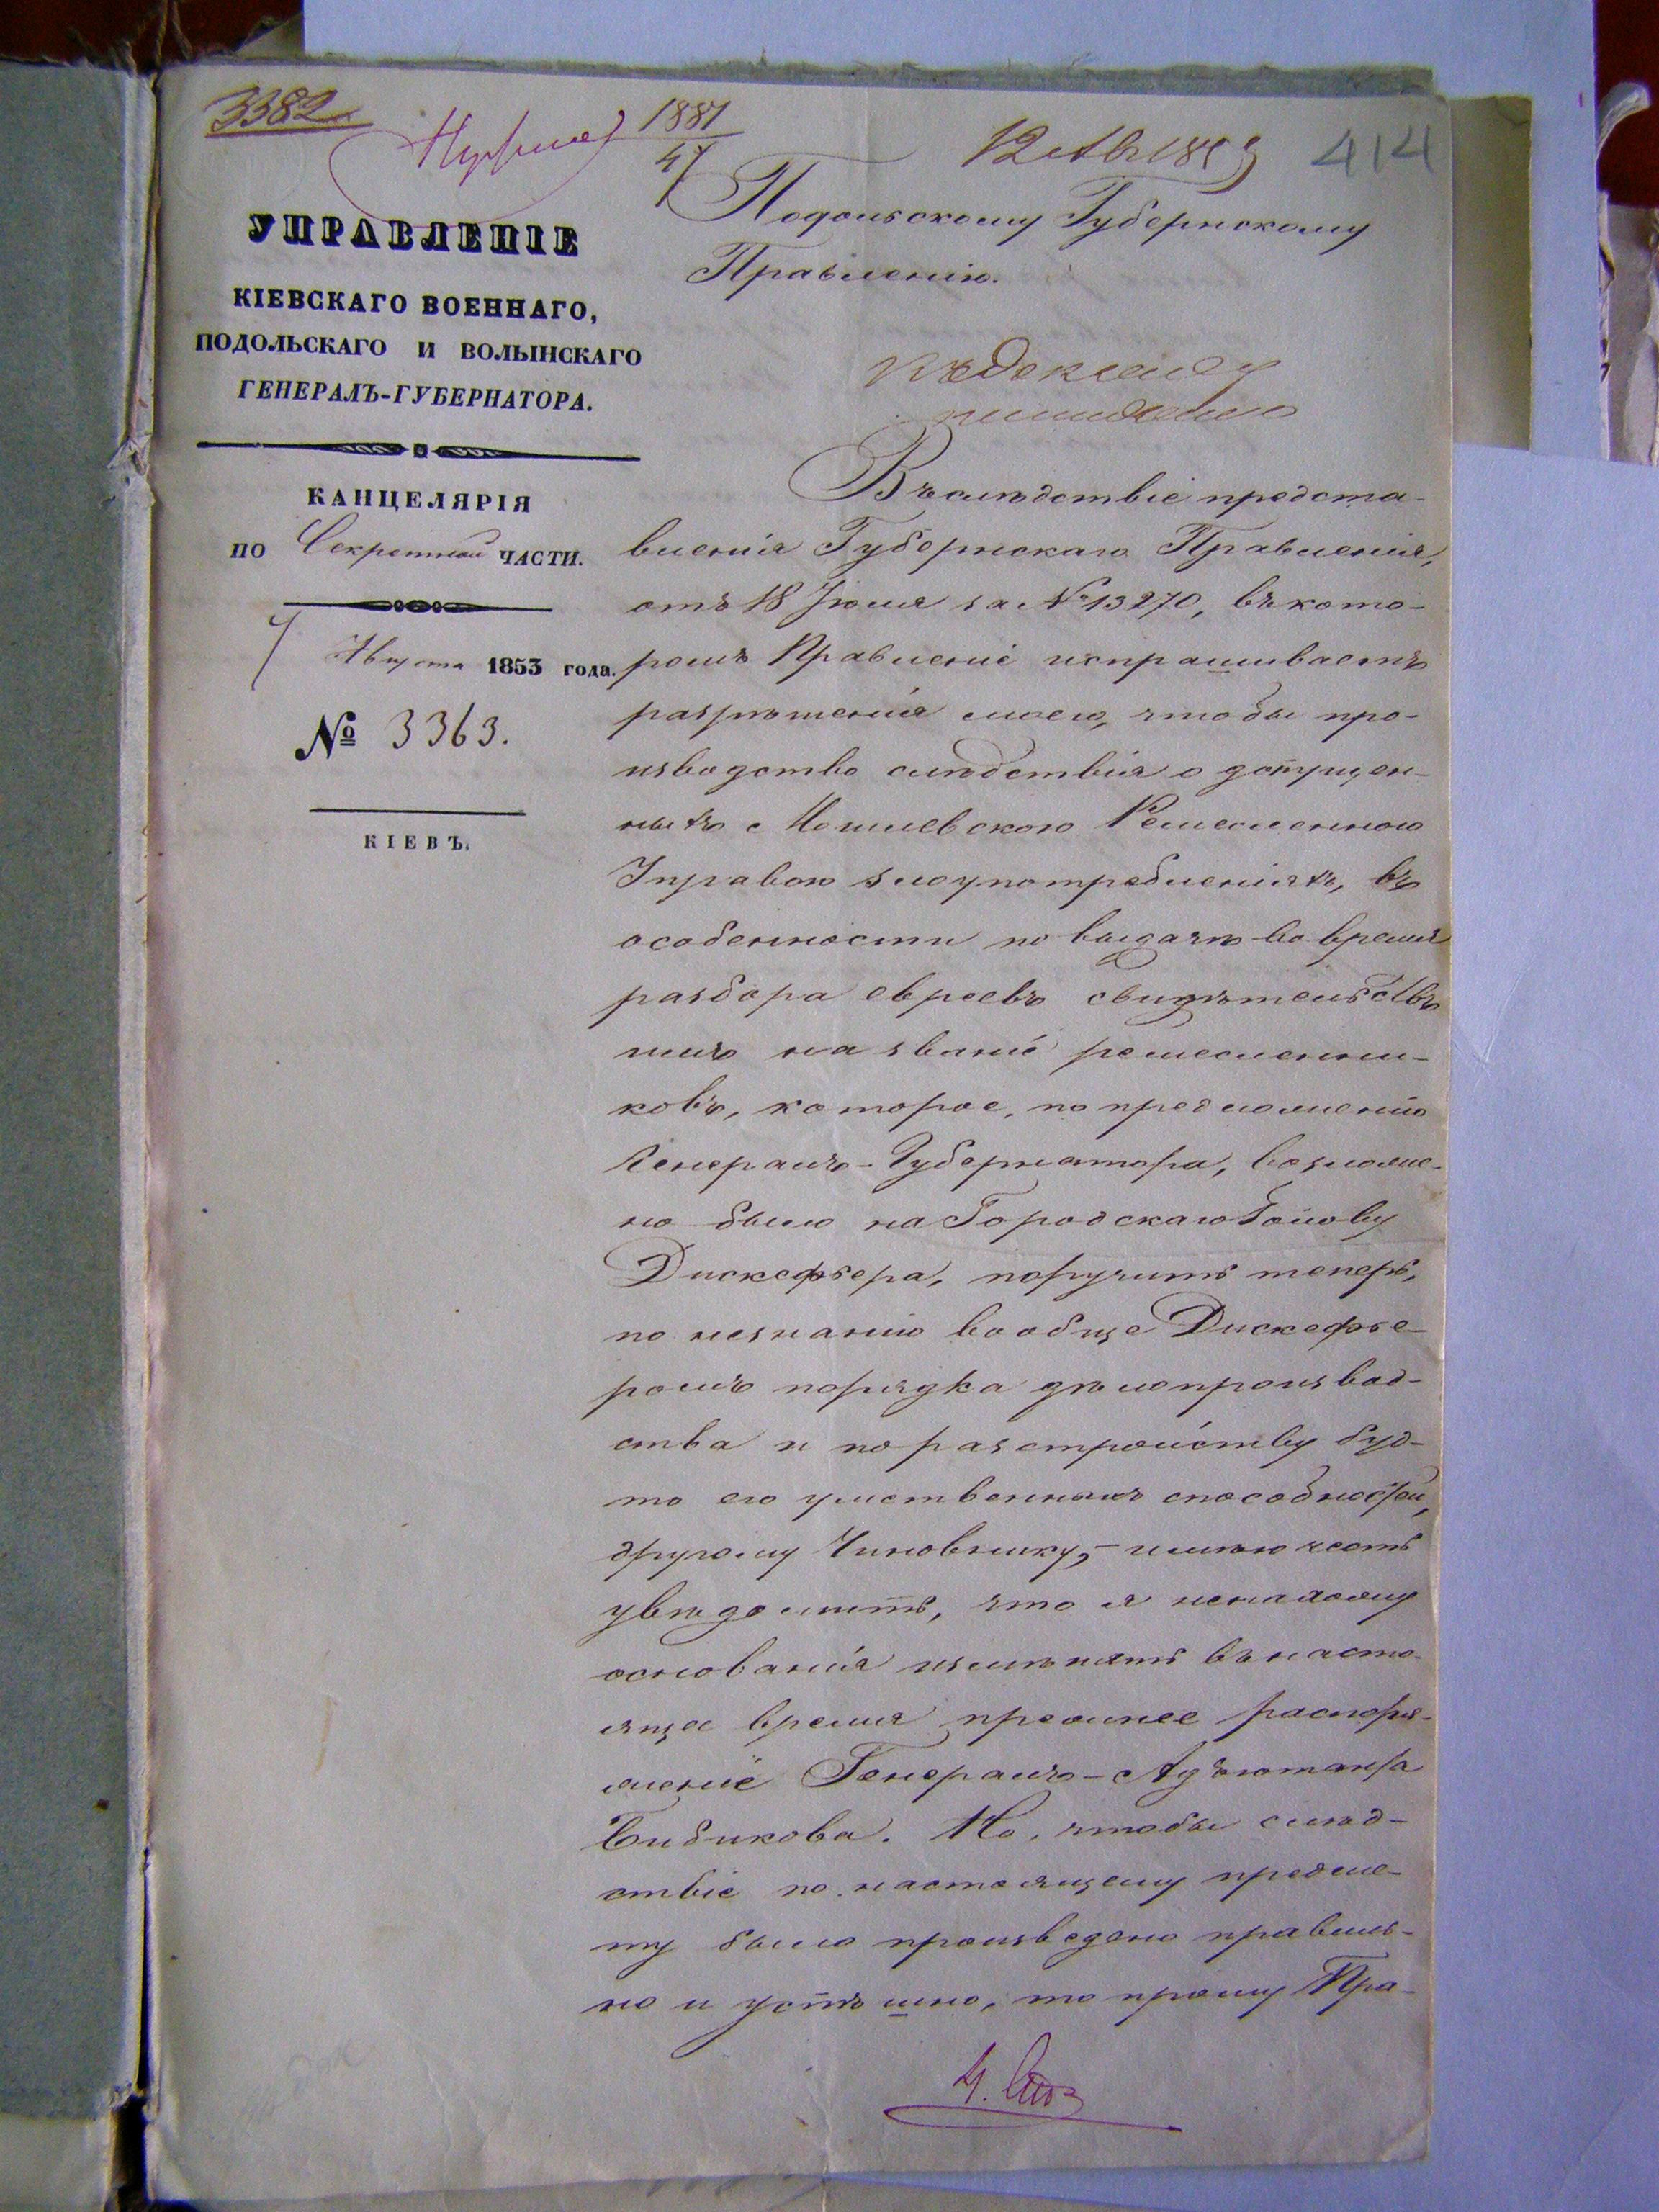 3382
1881
47
12 Авг 1853
414
УПРАВЛЕНІЕ
КІЕВСКАГО ВОЕННАГО,
ПОДОЛЬСКАГО И ВОЛЫНСКАГО
ГЕНЕРАЛЪ-ГУБЕРНАТОРА.
КАНЦЕЛЯРІЯ
ПО Секретной ЧАСТИ.
7 Августа 1853 года.
№ 3363.
КІЕВЪ.
Подольскому Губернскому
Правленію.
Въ слѣдствіе предста-
вленія Губернскаго Правленія,
отъ 18 Іюля за № 13270, въ кото-
ромъ Правленіе испрашиваетъ
разрѣшенія моего, чтобы про-
изводство слѣдствія о допущен-
ныхъ Могилевскою Ремесленною
Управою злоупотребленіяхъ, въ
особенности по выдачѣ во время
разбора евреевъ свидѣтельствъ
имъ на званіе ремесленни-
ковъ, которое, по предложенію
Генералъ-Губернатора, возложе-
но было на Городскаго Голову
Дискефьера, поручить теперь,
по незнанію вообще Дискефье-
ромъ порядка дѣлопроизвод-
ства и по разстройству буд-
то его умственныхъ способностей,
другому Чиновнику,- имѣю честь
увѣдомить, что я не нахожу
основанія измѣнять въ насто-
ящее время прежнее распоря-
женіе Генералъ-Адъютанта
Бибикова. Но, чтобы слѣд-
ствіе по настоящему предме-
ту было произведено правиль-
но и успѣшно, то прошу Пра-